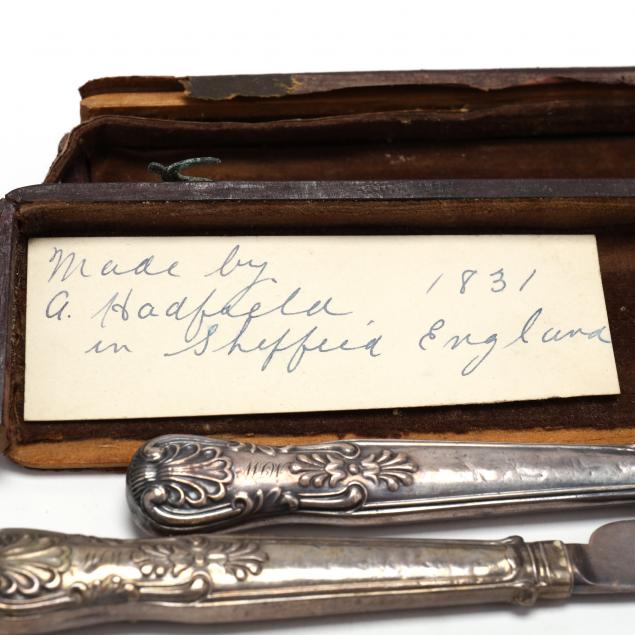 Made by
A. Hadfield 1831
in Sheffield England